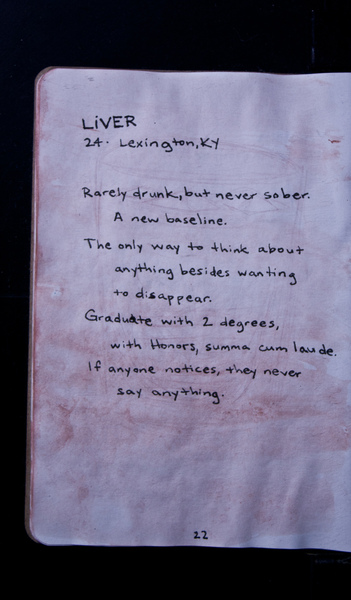 LiVER
24. Lexington, KY
Rarely drunk, but never sober.
A new baseline.
The only way to think about
anything besides wanting
to disappear.
Graduate with 2 degrees,
with Honors, summa cum laude.
If anyone notices, they never
say anything.
22